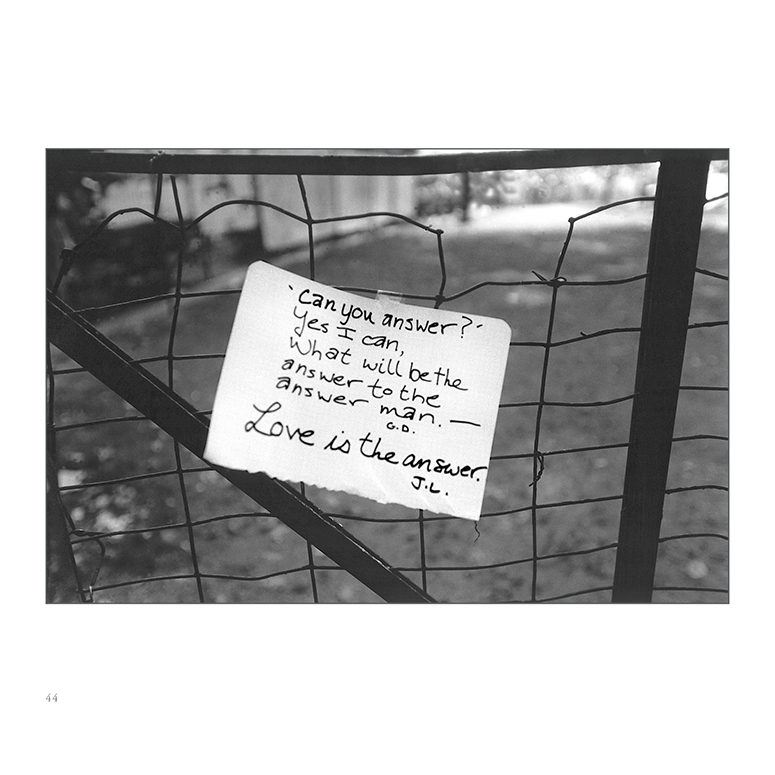 "Can you answer?"
Yes I can,
What will be the
answer to the
answer man. —
G.D.
Love is the answer.
J.L.
44